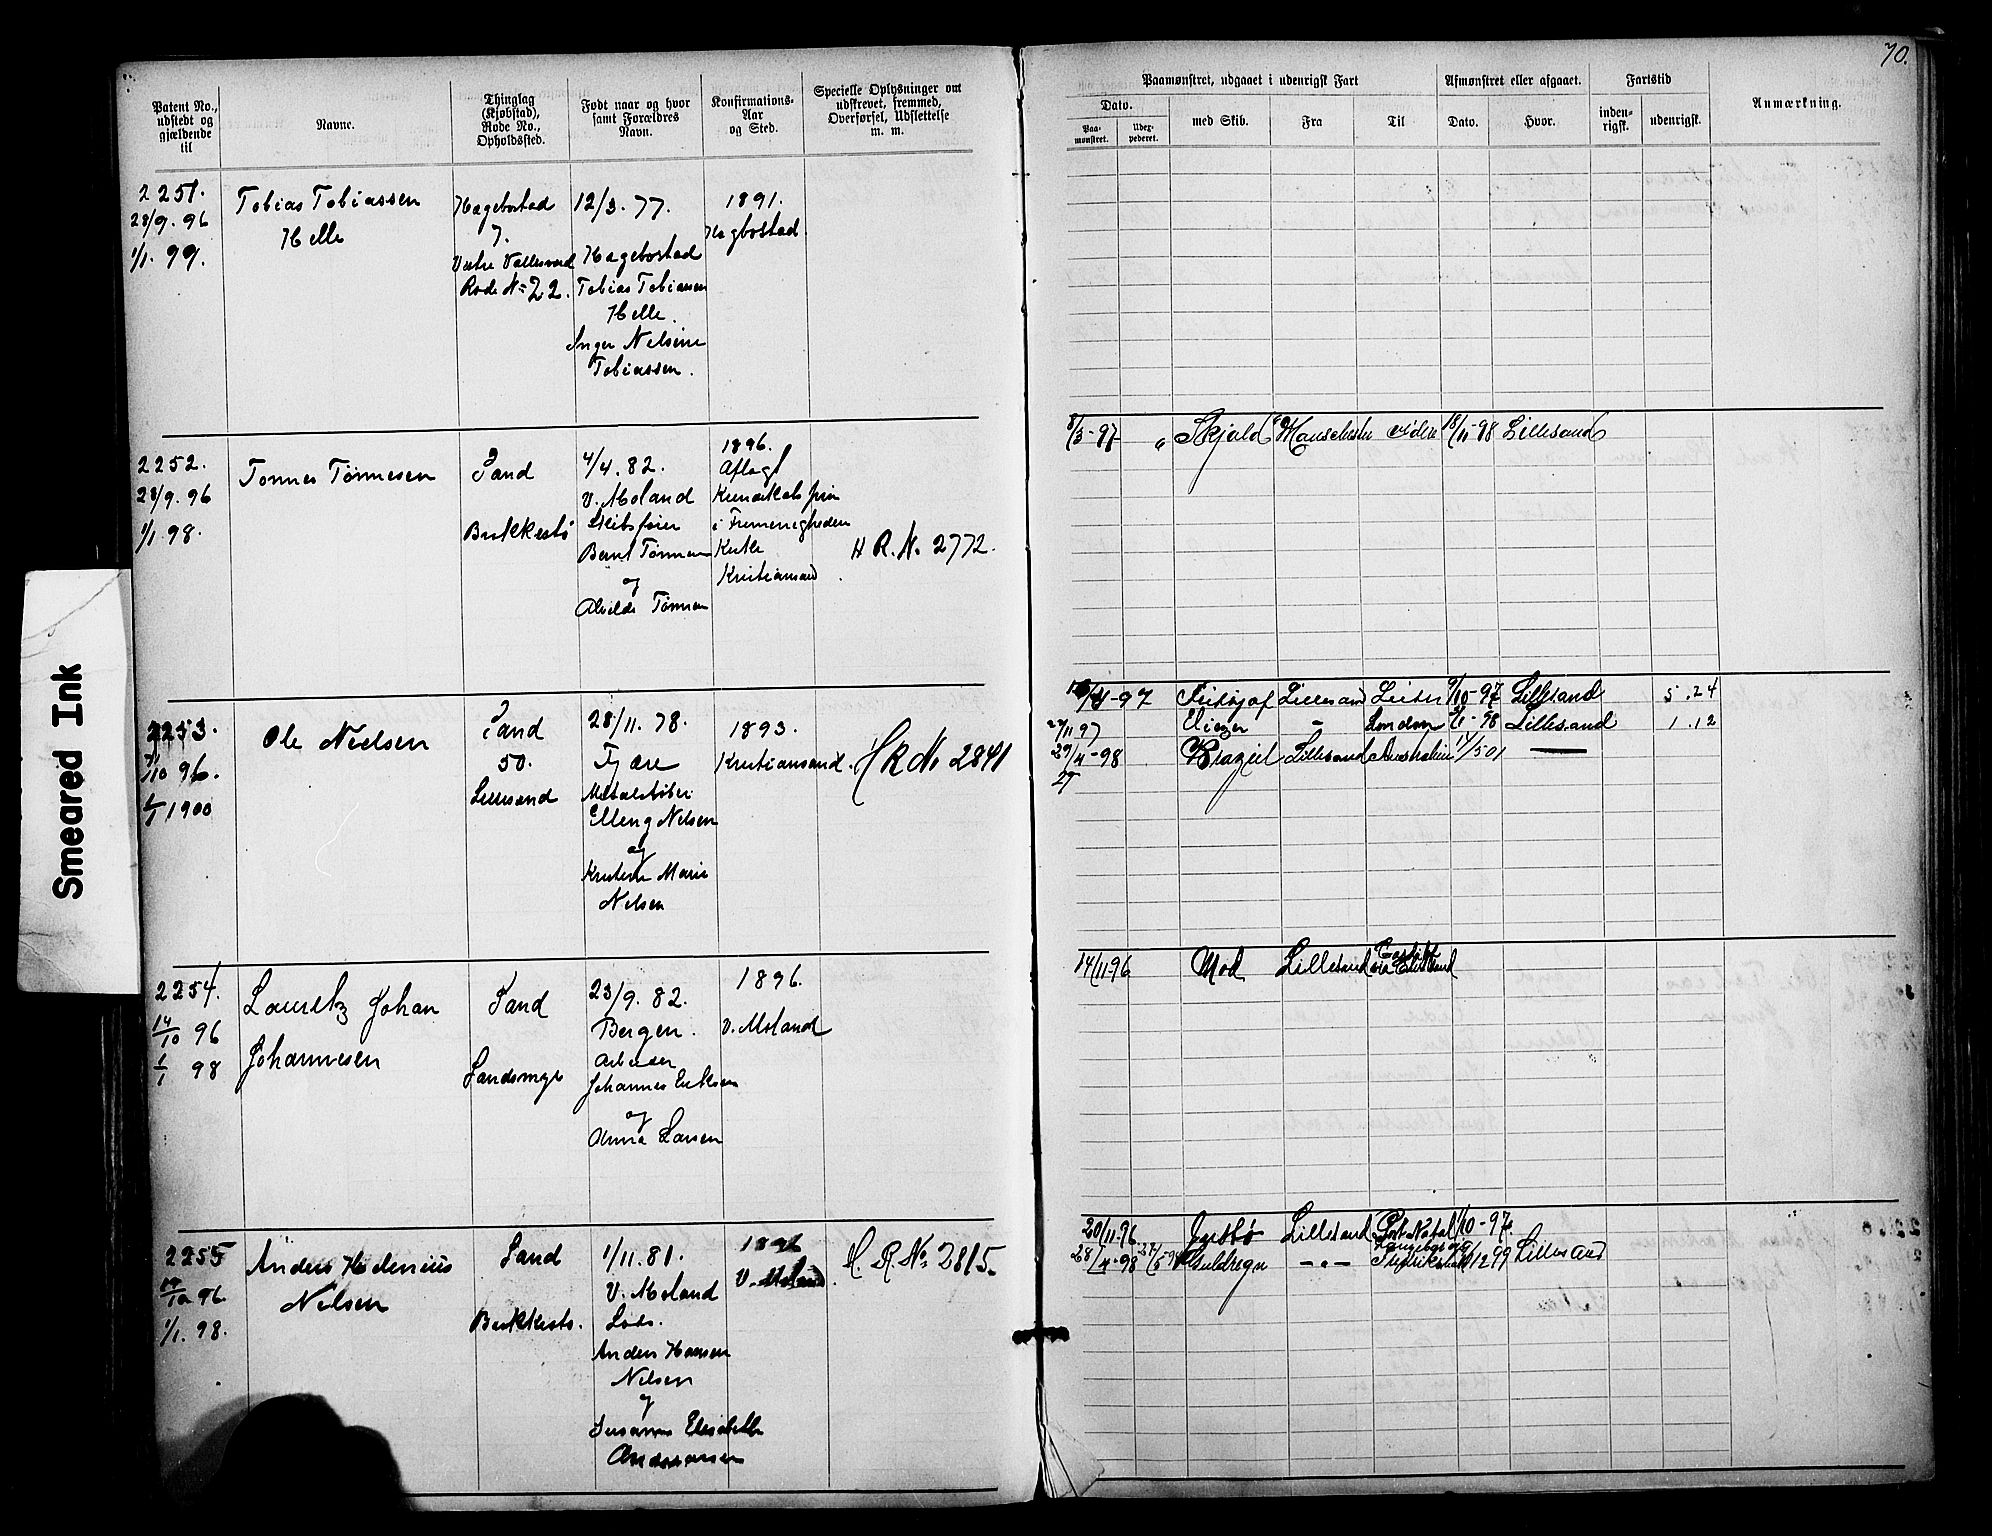 70.
Patent No.,
udstedt og
gjældende
til
Navne.
Thinglag
(Kjøbstad),
Rode No.,
Opholdssted.
Født naar og hvor
samt Forældres
Navn.
Konfirmations-
Aar
og Sted.
Specielle Oplysninger om
udskrevet, fremmed,
Overførsel, Udslettelse
m. m.
Paamønstret, udgaaet i udenrigsk Fart
Dato.
Paa-
mønstret.
Udex-
pederet.
med Skib.
Fra
Til
Afmønstret eller afgaaet.
Dato.
Hvor.
Fartstid
inden-
rigsk.
udenrigsk.
Anmærkning.
2251.
28/9. 96
1/1. 99.
Tobias Tobiassen
Helle
Hagebostad
7.
Vestre Vallesverd
Rode No 22.
12/3. 77.
Hagebostad
Tobias Tobiassen
Helle.
Inger Nelsine
Tobiassen.
1891.
Hagbostad
2252.
28/9. 96
1/1. 98.
Tønnes Tønnesen
Sand
Brekkestø
4/4. 82.
V. Moland
Skibsfører
Bernt Tønnesen
og
Alvilde Tønnesen
1896.
Aflagt
i Frimenigheden
Kristiansand
H R. N. 2772.
8/3-97 " Skjold Manchester videre 18/11-98 Lillesand
2253.
/10 96.
1/1 1900
Ole Nielsen
Sand
50.
Lillesand
28/11. 78.
Fjære
Metalstøber
Elleng Nelsen
og
Kristine Marie
Nelsen
1893.
Kristiansand.
H R No 2841
/4-97 Lillesand /10-97 Lillesand 5.24
27/11 97 Eliezer - London /6-98 Lillesand 1.12
29/4-98 Brazil Lillesand Australien 14/5 01
27
2254.
14/10 96
1/1 98
Lauritz Johan
Johannesen
Sand
Sandsmyr
23/9. 82.
Bergen.
Arbeider
Johannes Eriksen
og
Anna Larsen
1896.
V. Moland
14/11-96 Mod Lillesand
2255
/10 96
1/1. 98.
Anders Hedenius
Nilsen
Sand
Brekkestø.
1/11. 81.
V. Moland
Lods.
Anders Hansen
Nilsen
og
Susanna Elisabeth
Andreassen
1896
V. Moland
H. R. No. 2815.
20/11-96 Justø Lillesand Port Natal /10-97
28/4-98 Guldregn -"- Fredrikshald /12 99 Lillesand
Smeared Ink